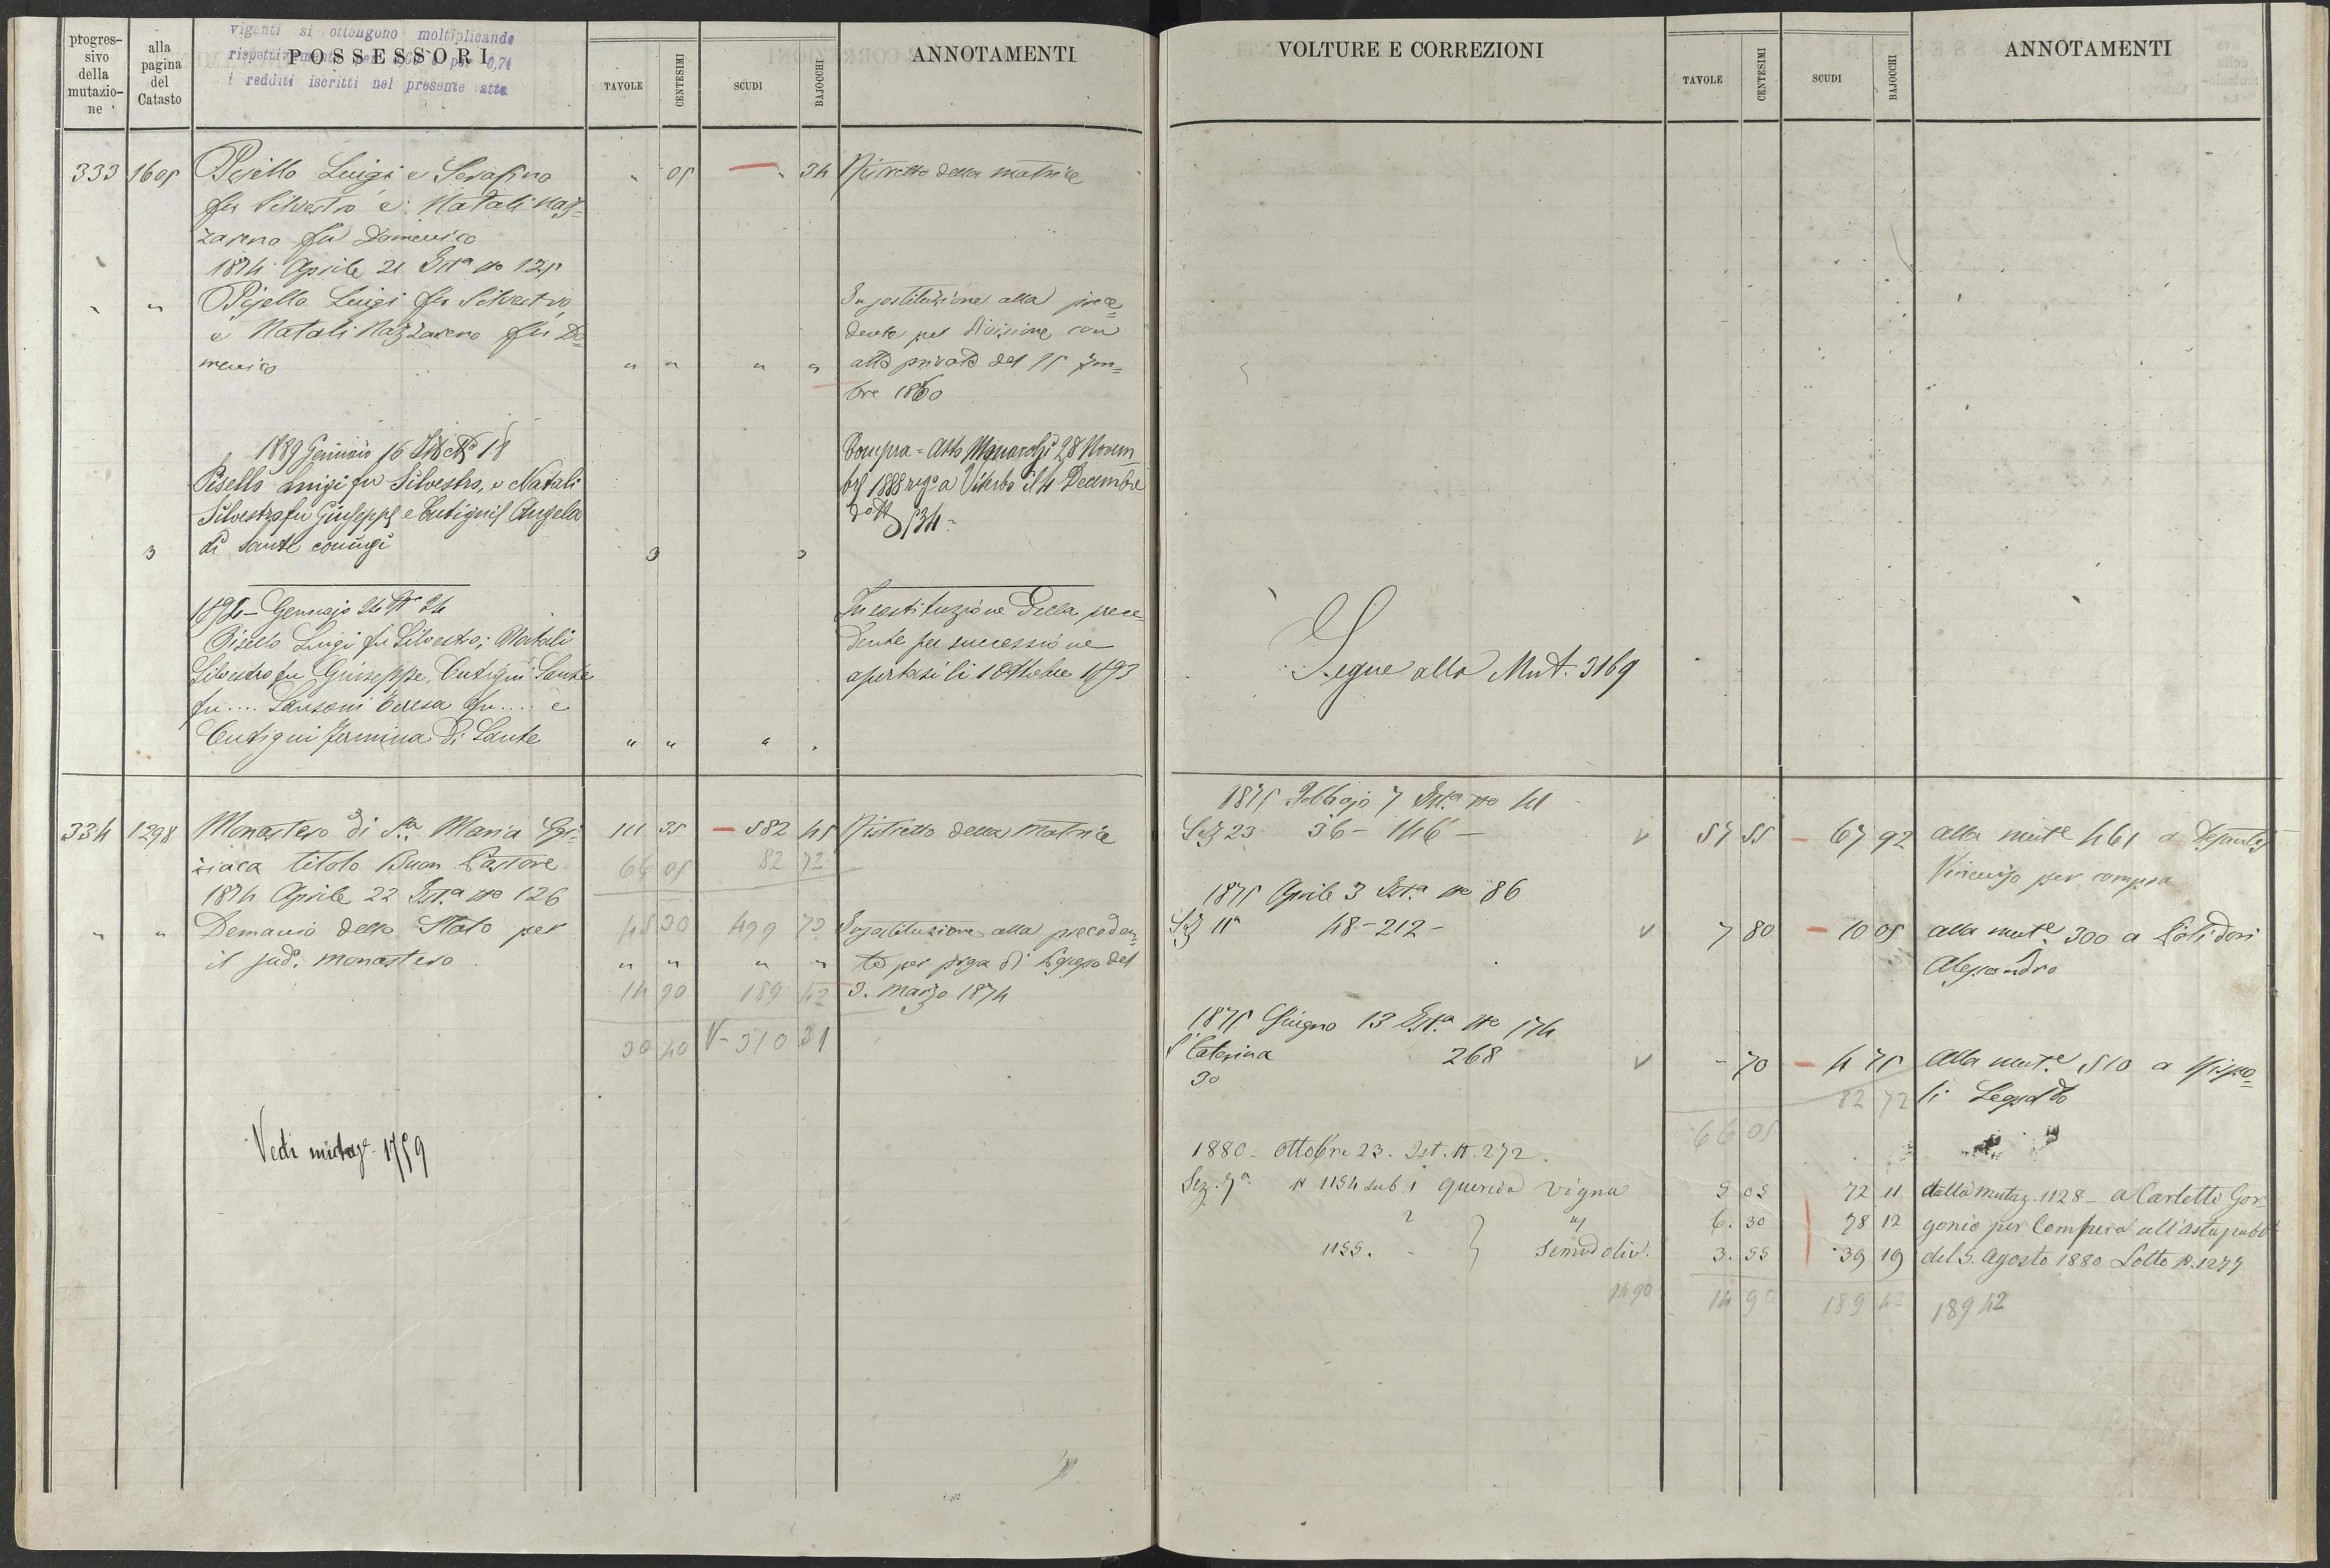 progres-
sivo
della
mutazio-
ne
alla
pagina
del
Catasto
viganti si ottengono moltiplicando
rispettivamente per
0,71
i redditi iscritti nel presente atto
POSSESSORI
TAVOLE
CENTESIMI
SCUDI
BAJOCCHI
ANNOTAMENTI
333 1605 Pisello Luigi e Serafino „ 05 — „ 34 Ristretto della matrice
fu Silvestro e Natali Naz=
zareno fu Domenico
1874 Aprile 21 Ist.a No 125
„ „ Pisello Luigi fu Silvestro, In sostituzione alla prece=
e Natali Nazzareno fu Do= dente per divisione con
menico „ „ „ „ atto privato del 15
bre 1860
1889 Gennaio 16 Ist No 18 Compra = Atto 28 Novem
Pisello Luigi fu Silvestro, e Natali bre 1888 reg.o a Viterbo il 4 Decembre
Silvestro fu Giuseppe e Cutigni Angela d.o N 534 -
di Sante coniugi
1894 - Gennajo 24 No 24 In sostituzione della prece
Pisello Luigi fu Silvestro; Natali dente per successione
Silvestro fu Giuseppe, Cutigni Sante apertasi li 1 Ottobre 1893
fu .... Sansoni Teresa fu .... e
Cutigni Fermina di Sante „ „ „ „
334 1298 Monastero di S.a Maria Egi= 111 35 — 582 45 Ristretto della Matrice
ziaca titolo Buon Pastore 66 05 82 72
1874 Aprile 22 Ist.a No 126
„ „ Demanio dello Stato per 45 30 499 73 In sostituzione alla preceden=
il sud. monastero „ „ „ „ te per presa di possesso del
14 90 189 42 3. Marzo 1874
30 40 V- 310 31
Vedi mutaz.e 1759
VOLTURE E CORREZIONI
TAVOLE
CENTESIMI
SCUDI
BAJOCCHI
ANNOTAMENTI
Segue alla Mut. 3169
1875 Febbrajo 7 Ist.a No 41
Sez 23 36 - 146 - V 57 55 — 67 92 alla mut.e 461 a
Vincenzo per compra
1875 Aprile 3 Ist.a No 86
Sez 11a 48 - 212 - V 7 80 — 10 05 alla mut.e 300 a Polidori
Alessandro
1875 Giugno 13 Ist.a No 174
S. Caterina 268 V - 70 — 4 75 Alla mut.e 510 a Rispo=
30 82 72 li
66 05
1880 - Ottobre 23. Ist. N. 272.
Sez. 7a. N 1154 sub 1 Querceta vigna 5 05 72 11 dalla mutaz. 1128 - a Carletti Gor
2 6. 30 78 12 gonio per Compera all'asta pubb
1155. - } Semo oliv. 3. 55 39 19 del 5. Agosto 1880 Lotto N. 1277
14 90 14 90 189 42 189 42